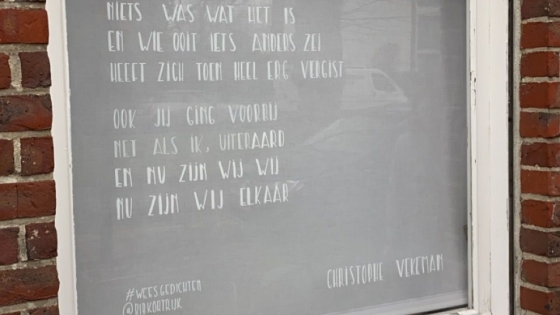 NIETS WAS WAT HET IS
EN WIE OOIT IETS ANDERS ZEI
HEEFT ZICH TOEN HEEL ERG VERGIST
OOK JIJ GING VOORBIJ
NET ALS IK, UITERAARD
EN NU ZIJN WIJ WIJ
NU ZIJN WIJ ELKAAR
CHRISTOPHE VEKEMAN
#WEESGEDICHTEN